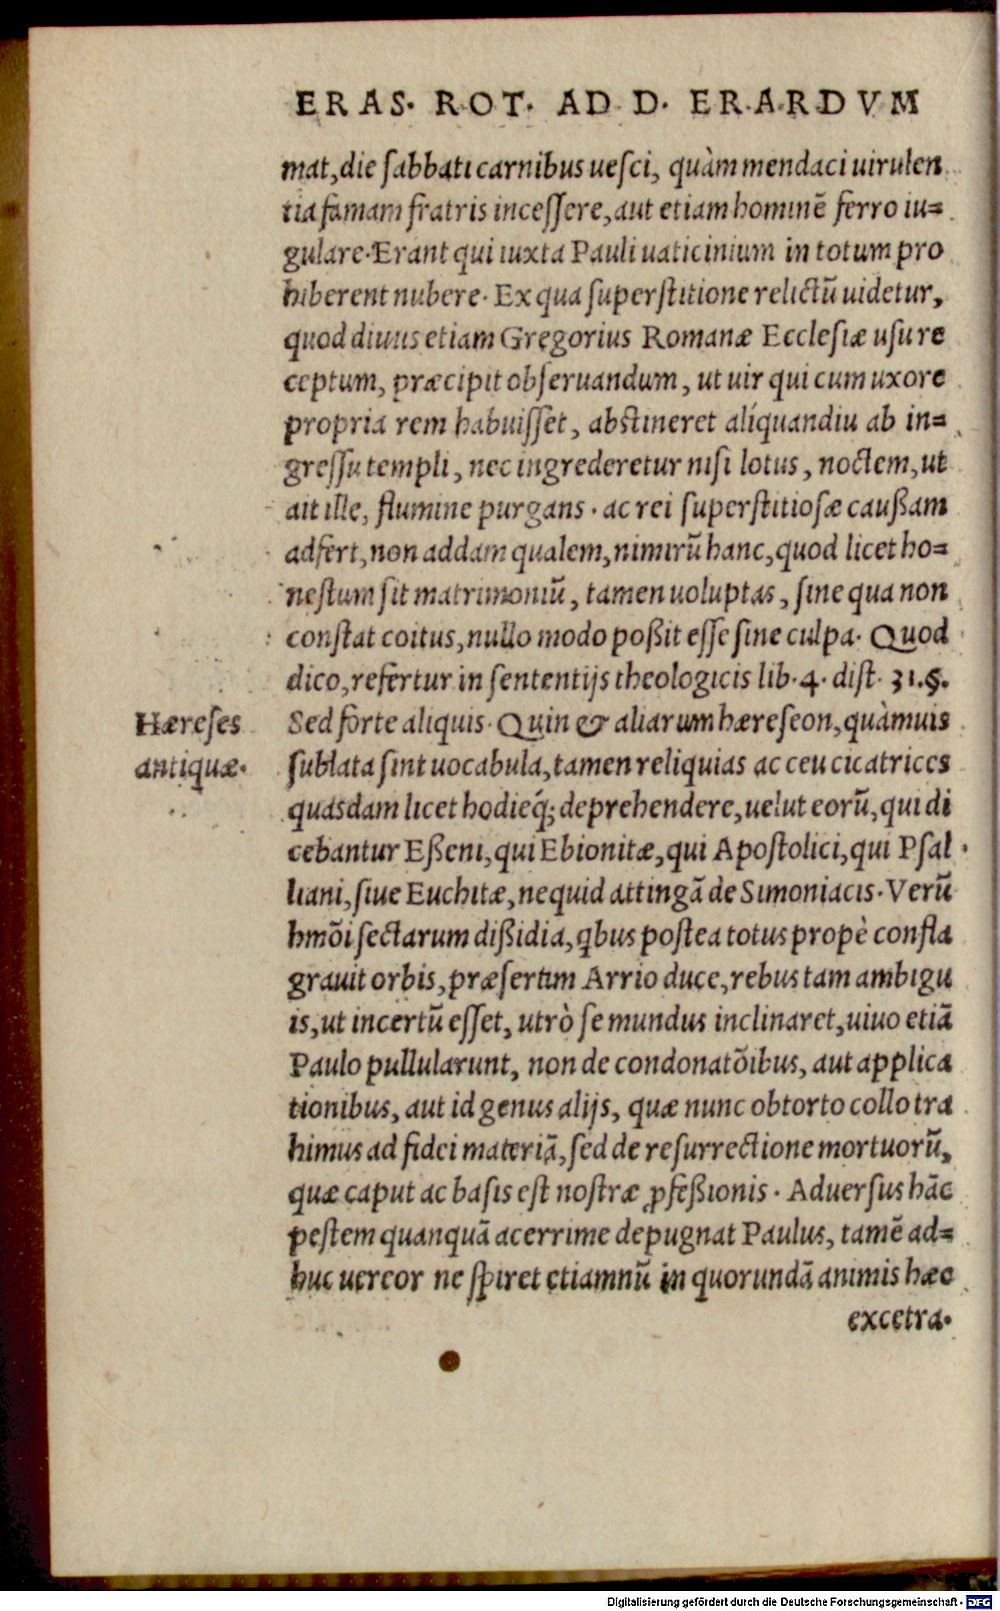 ERAS. ROT. AD D. ERARDVM
mat, die ſabbati carnibus ueſci, quàm mendaci uirulen
tia famam fratris inceſſere, aut etiam hominē ferro iu=
gulare. Erant qui iuxta Pauli uaticinium in totum pro
hiberent nubere. Ex qua ſuperſtitione relictū uidetur,
quod diuus etiam Gregorius Romanæ Eccleſiæ uſu re
ceptum, præcipit obſeruandum, ut uir qui cum uxore
propria rem habuiſſet, abſtineret alíquandiu ab in=
greſſu templi, nec ingrederetur niſi lotus, noctem, ut
ait ille, flumine purgans. ac rei ſuperſtitioſæ caußam
adfert, non addam qualem, nimirū hanc, quod licet ho=
neſtum ſit matrimoniū, tamen uoluptas, ſine qua non
conſtat coitus, nullo modo poßit eſſe ſine culpa. Quod
dico, refertur in ſententijs theologicis lib. 4. diſt. 31. §.
Hæreſes
antiquæ.
Sed forte aliquis. Quin & aliarum hæreſeon, quàmuis
ſublata ſint uocabula, tamen reliquias ac ceu cicatrices
quasdam licet hodieq́; deprehendere, uelut eorū, qui di
cebantur Eßeni, qui Ebionitæ, qui Apoſtolici, qui Pſal
liani, ſiue Euchitæ, ne quid attingā de Simoniacis. Verū
hmōi ſectarum dißidia, qbus poſtea totus propè confla
grauit orbis, præſertim Arrio duce, rebus tam ambigu
is, ut incertū eſſet, utrò ſe mundus inclinaret, uiuo etiā
Paulo pullularunt, non de condonatōibus, aut applica
tionibus, aut id genus alijs, quæ nunc obtorto collo tra
himus ad fidei materiā, ſed de reſurrectione mortuorū,
quæ caput ac baſis eſt noſtræ ꝓfeßionis. Aduerſus hāc
peſtem quanquā acerrime depugnat Paulus, tamē ad=
huc uereor ne ſpiret etiamnū in quorundā animis hæc
excetra.
Digitalisierung gefördert durch die Deutsche Forschungsgemeinschaft - DFG